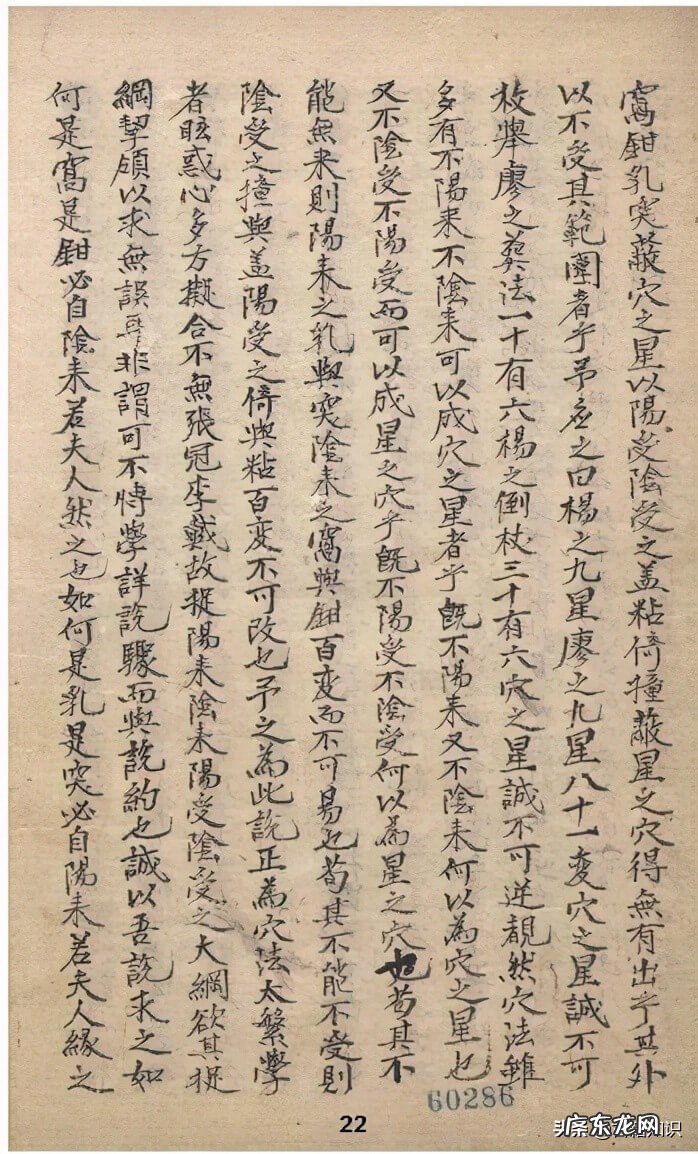 窩鉗乳突蔽穴之星以陽受陰受之盖粘倚撞蔽星之穴得無有出乎其外
以不受其範圍者乎予应之曰楊之九星廖之九星八十一变穴之星誠不可
枚舉廖之葬法一十有六楊之倒杖三十有六穴之星誠不可逆覩然穴法雖
多有不陽来不陰来可以成穴之星者乎既不陽来又不陰来何以為穴之星也
又不陰受不陽受而可以成星之穴乎既不陽受不陰受何以為星之穴也苟其不
能無来則陽来之乳與突陰来之窩與鉗百变而不可易也苟其不能不受則
陰受之撞與盖陽受之倚與粘百变不可改也予之為此説正為穴法太繁學
者眩惑心多方擬合不無張冠李戴故捉陽来陰来陽受陰受之大綱欲其捉
綱挈領以求無誤耳非謂可不愽學詳説驟而與説約也誠以吾説求之如
何是窩是鉗必自陰来若夫人然之也如何是乳是突必自陽来若夫人緣之
60286
22
头条
东龙网
识